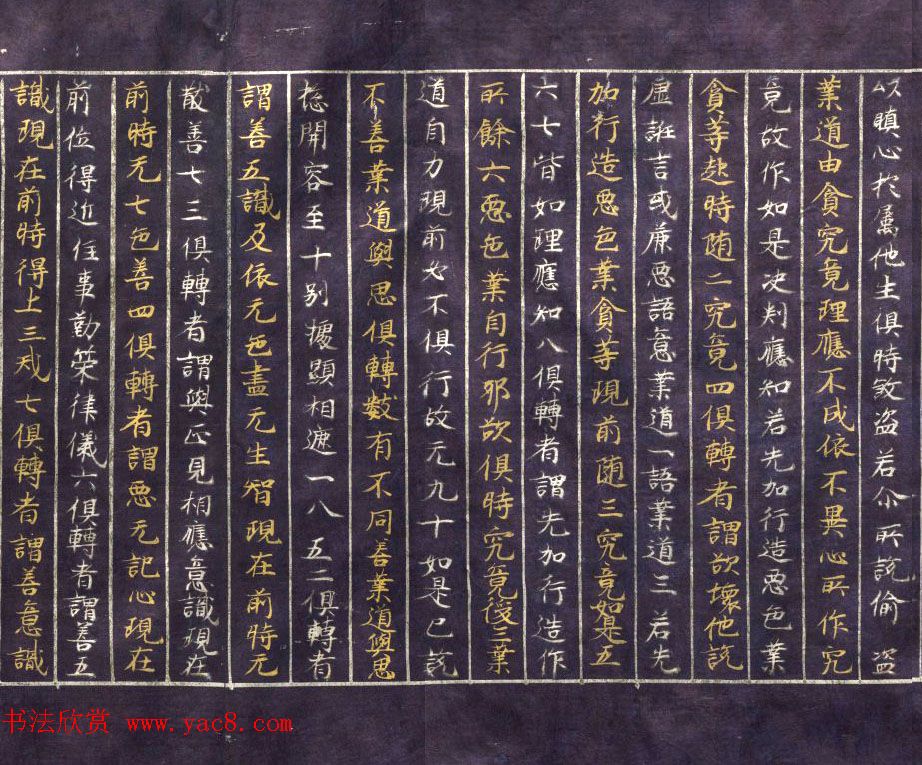 以瞋心於属他生俱時敎盗若尒所説偷盗
業道由貪究竟理應不成依不異心所作究
竟故作如是决判應知若先加行造惡色業
貪等起時随二究竟四俱轉者謂欲壞他説
虚誑言或麁惡語意業道一語業道三若先
加行造惡色業貪等現前随三究竟如是五
六七皆如理應知八俱轉者謂先加行造作
所餘六惡色業自行邪欲俱時究竟後三業
道自力現前必不俱行故无九十如是已説
不善業道與思俱轉數有不同善業道與思
惣開容至十别據顯相遮一八五二俱轉者
謂善五識及依无色盡无生智現在前時无
散善七三俱轉者謂與正見相應意識現在
前時无七色善四俱轉者謂惡无記心現在
前位得近住事勤策律儀六俱轉者謂善五
識現在前時得上三戒七俱轉者謂善意識
书法欣赏 www.yac8.com